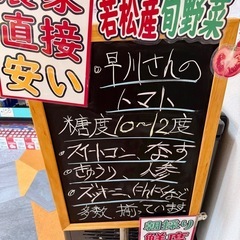 直接
安い
若松産旬野菜
・早川さんの
トマト
糖度10〜12度
・スイートコーン、なす
・きゅうり、人参
・ズッキーニ、にんにくなど
多数揃っています